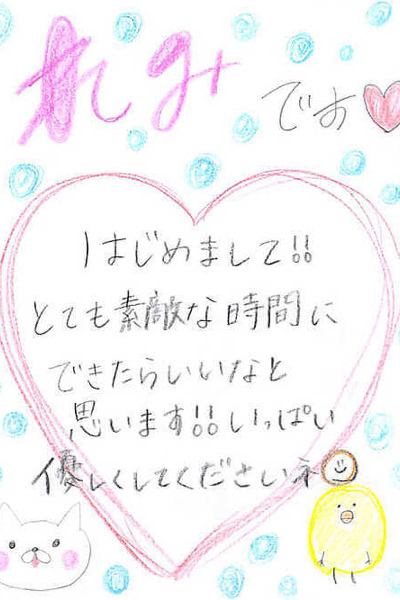 れみ
です
はじめまして!!
とても素敵な時間に
できたらいいなと
思います!!いっぱい
優しくしてくださいネ